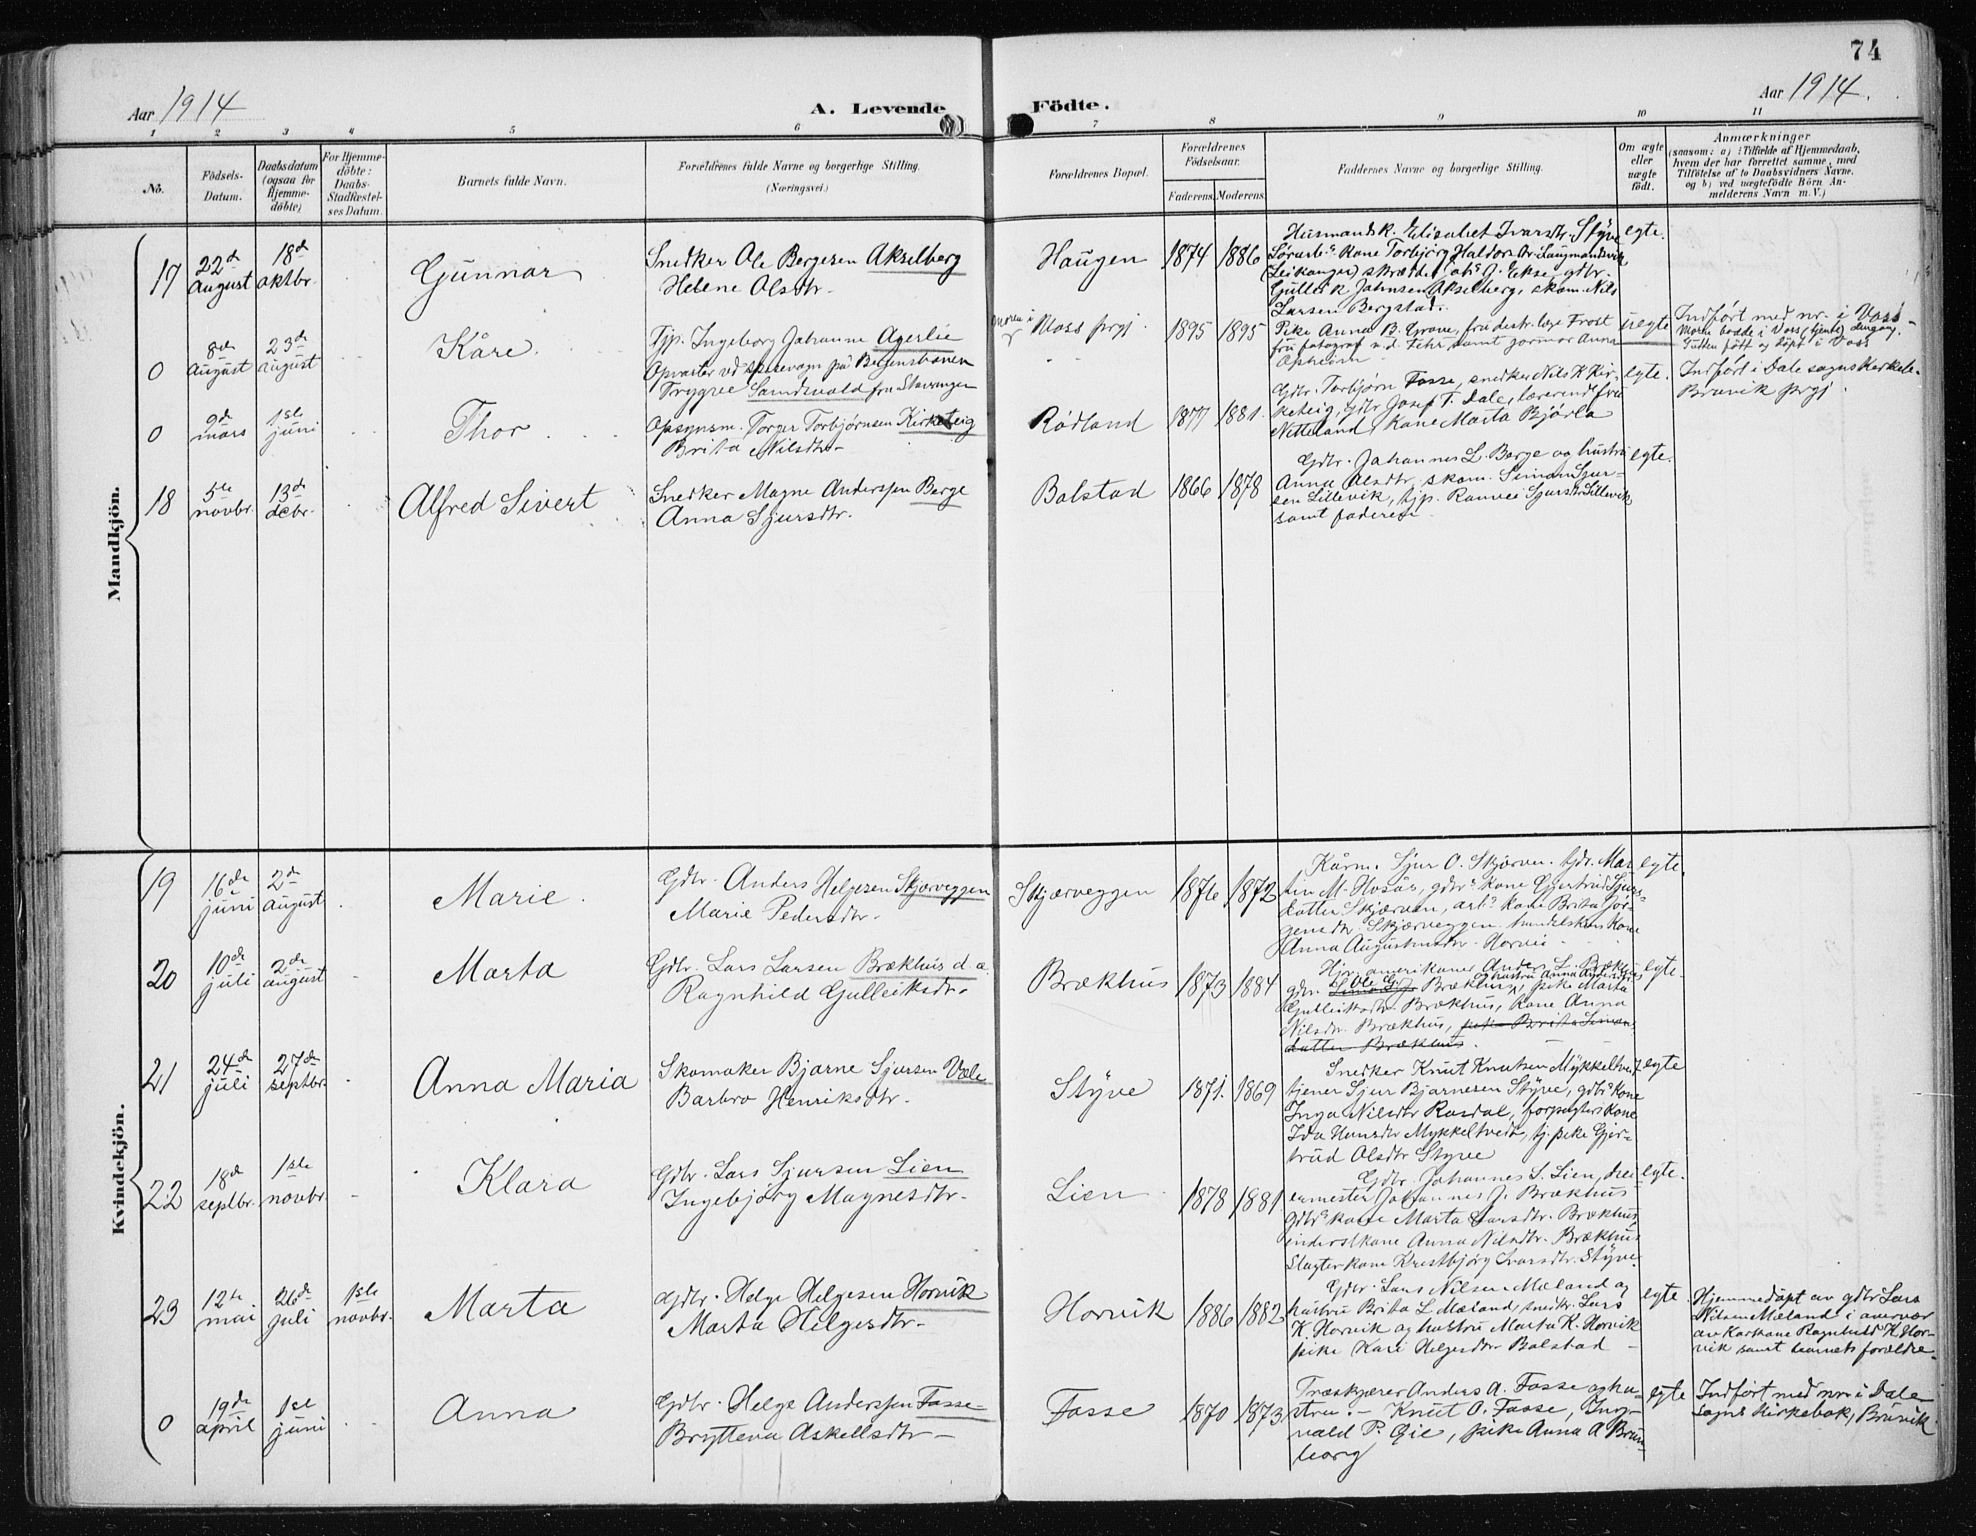 74
Aar 1914
A. Levende Födte.
Aar 1914.
1 2 3 4 5 6 7 8 9 10 11
No.
Födsels-Datum.
Daabsdatum (ogsaa for Hjemme-döbte)
For Hjemme-döbte: Daabs-Stadfæstel-ses Datum.
Barnets fulde Navn.
Forældrenes fulde Navne og borgerlige Stilling.
(Næringsvei.)
Forældrenes Bopæl.
Forældrenes Födselsaar.
Faderens. Moderens.
Faddernes Navne og borgerlige Stilling.
Om ægte eller uægte födt.
Anmærkninger
(saasom: a) i Tilfælde af Hjemmedaab,
hvem der har forrettet samme, med
Tilföielse af to Daabsvidners Navne.
og b) ved uægtefödte Börn An-
melderens Navn m. V.)
Mandkjön.
17
22de august
18de oktbr.
Gunnar
Snedker Ole Bergesen Akselberg
Helene Olsdtr.
Haugen
1874 1886
Husmandsk. Elisabet Ivarsdtr. Styve
kone Torbjørg Haldorsdtr. Laugmandsvik
(Leikanger) J. Ekse, gdbr.
Gulleik Johnsen Akselberg, skom. Nils
Larsen Bergstad.
egte.
0
8de august
23de august
Kåre.
Tjp. Ingeborg Johanne Agerlie
Opvarter ved spisevogn på Bergensbanen
Trygve Sandsvald fra Stavanger
Moren i Voss prgj.
1895 1895
Pike Anna B. Grove, fru destr. Frost
fru fotograf samt jormor Anna
Opheim
uegte
Indført med nr. i Voss
Moren bodde i Voss (tjente)
Gutten født og døpt i Voss
0
9de mars
1ste juni
Thor.
Opsynsm. Torger Torbjørnsen Kirketeig
Brita Nilsdtr.
Rødland
1877 1881.
Gdbr. Torbjørn Fosse, snedker Nils K Kir-
keteig, gdbr Josef T. Dale, lærerinde fru
Nitteland, Kone Marta Bjørlo
egte.
Indført i Dale sogns kirkebok
Bruvik prgj.
18
5te novbr.
13de debr.
Alfred Sivert
Snedker Magne Anderssen Berge
Anna Sjursdtr.
Bolstad
1866 1878
Gdbr. Johannes L. Berge og hustru
Anna Olsdtr, skom. Simon Sjur-
sen Lillevik, tjp. Ranvei Sjursdtr Lillevik
samt faderen.
egte.
Kvindekjön.
19
16de juni
2de august
Marie.
Gdbr. Anders Helgesen Skjærveggen
Marie Pedersdtr.
Skjærveggen
1876 1872
Kårm. Sjur O. Skjerven. Gdr. Mar-
tin M. Hosås, gdbrs kone Gjertrud Sjurs-
datter Skjærven, arbs kone Brita Jør-
gensdtr. Skjærveggen. handelsmans kone
Anna Augustinusdtr. Horvie
egte.
20
10de juli
2de august
Marta
Gdbr. Lars Larsen Brækhus d.a.
Ragnhild Gulleiksdtr.
Brækhus
1873 1884
Hjv. amerikaner Anders L. Brækhus,
gdbr. Ole G. Brækhus, hustru Anna Andersdtr, pike Marta
Gulleiksdtr. Brækhus, kone Anna
Nilsdtr. Brækhus, pike Brita Simon-
datter Brækhus.
egte.
21
24de juli
27de septbr.
Anna Maria
Skomaker Bjarne Sjursen Væle
Barbro Henriksdtr.
Styve
1871. 1869
Snedker Knut Knutsen Mykkeltveit
tjener Sjur Bjarnesen Styve, gdbrs kone
Inga Nilsdtr Rasdal, forpagters kone
Ida Hansdtr Mykkeltveit, tj. pike Gjer-
trud Olsdtr Styve
egte
22
18de septbr.
1ste novbr.
Klara
Gdbr. Lars Sjursen Lien
Ingebjørg Magnesdtr.
Lien
1878 1881
Gdbr. Johannes S. Lien, drei
ermester Johannes J. Brækhus
gdbrs kone Marta Larsdtr. Brækhus
inderstkone Anna Nilsdtr. Brækhus
Slagterkone Krestbjørg Ivarsdtr. Styve.
egte.
23
12te mai
26de juli
1ste novbr.
Marta
Gdbr. Helge Helgesen Horvik
Marta Helgesdtr.
Horvik
1886 1882
Gdbr. Lars Nilsen Mæland og
hustru Brita L Mæland, snedkr. Lars
K. Horvik og hustru Marta K. Horvik
pike Kari Helgesdtr Bolstad
egte.
Hjemmedøpt av gdbr Lars
Nilsen Mæland i overvær
av Karkone Ragnhild K Hor-
vik samt barnets forældre.
0
19de april
1ste juni
Anna
Gdbr. Helge Anderssen Fosse
Bryteva Askellsdtr
Fosse
1870 1873
Træskjærer Anders A. Fosse og hu-
stru. Knut O. Fosse, Ing-
vald P. Gil, pike Anna A Brun-
borg
egte
Indført med nr. i Dale
sogns kirkebok, Bruvik.